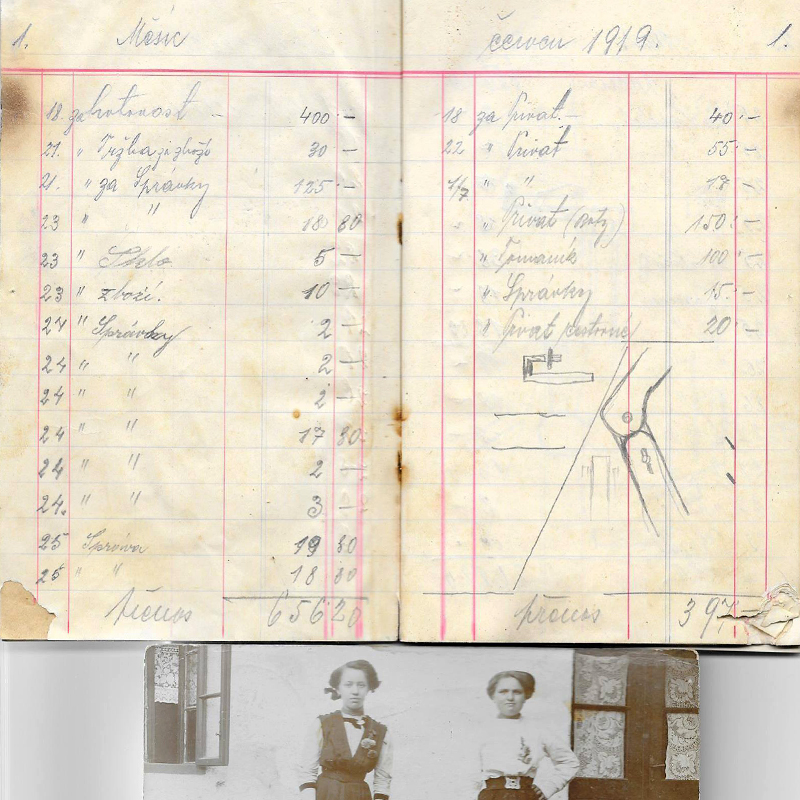 1. Měsíc
18. za hotovost — 400·—
21. " Tržba za zboží 30 —
21. " za Správky 125 —
23 " " 18 80
23 " Sklo 5 —
23 " zboží. 10 —
24 " Správky 2 —
24 " " 2 —
24 " " 2 —
24 " " 17 80
24 " " 2 —
24. " " 3 —
25 Správa 19 80
25 " " 18 80
přenos 656 20
červen 1919. 1.
18 za Privat.— 40·—
22 " Privat 55·—
1/7 " " 17 —
" Privat (boty) 150·—
" Tomaník 100·—
" Správky 15·—
" Privat 20·—
přenos 397 —